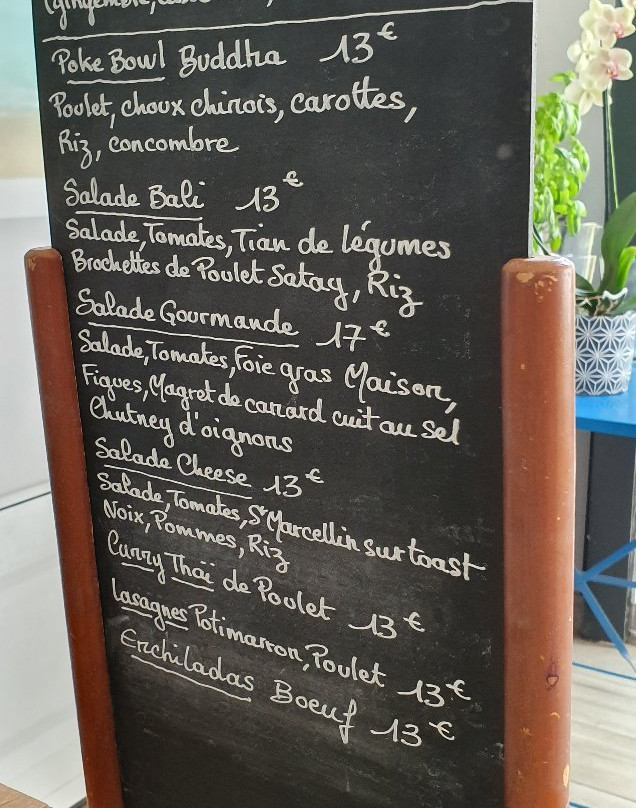 Poke Bowl Buddha 13€
Poulet, choux chinois, carottes,
Riz, concombre
Salade Bali 13€
Salade, Tomates, Tian de légumes
Brochettes de Poulet Satay, Riz
Salade Gourmande 17€
Salade, Tomates, Foie gras Maison,
Figues, Magret de canard cuit au sel
Chutney d'oignons
Salade Cheese 13€
Salade, Tomates, St Marcellin sur toast
Noix, Pommes, Riz
Curry Thaï de Poulet 13€
Lasagnes Potimarron, Poulet 13€
Enchiladas Boeuf 13€